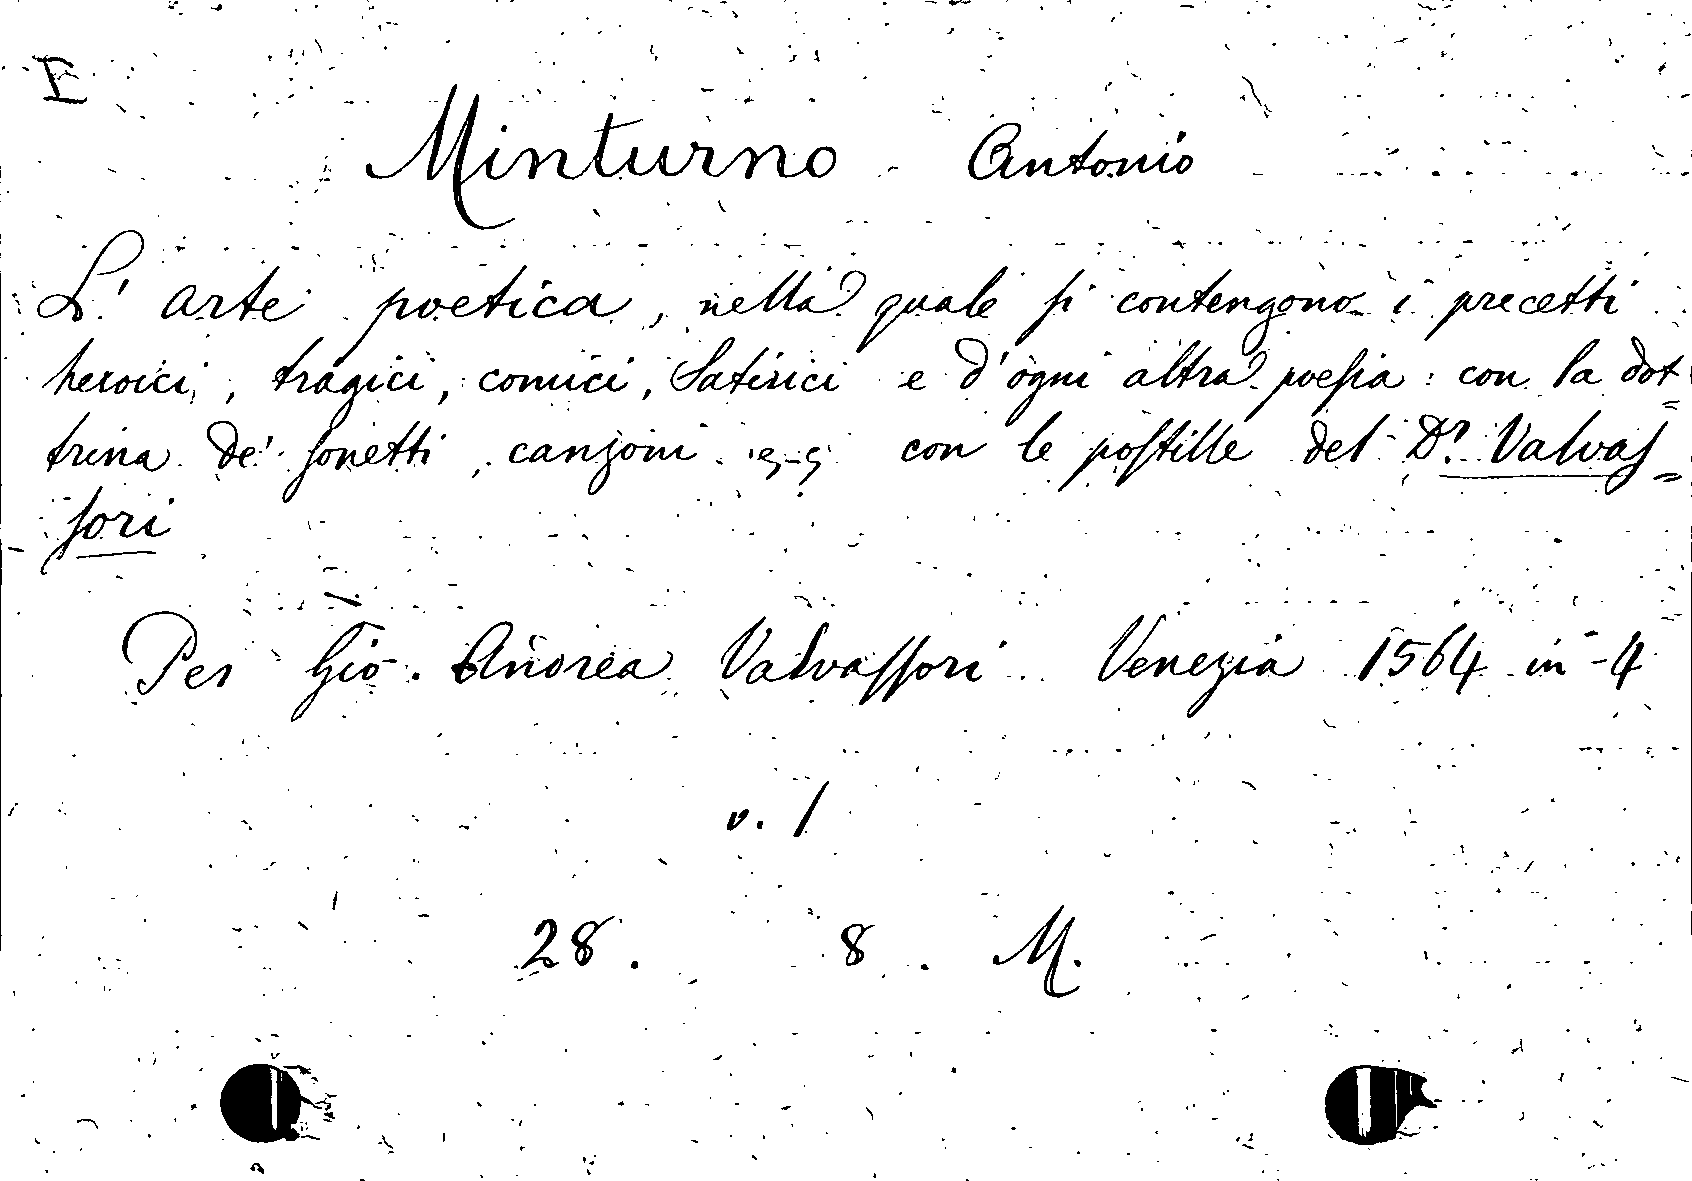 E
Minturno Antonio
L'arte poetica, nella quale si contengono i precetti
heroici, tragici, comici, Satirici e d'ogni altra poesia: con la dot=
trina de' sonetti, canzoni con le postille del Dr. Valvas=
sori
Per Gio. Andrea Valvassori Venezia 1564 in-4
v. 1
28. 8. M.